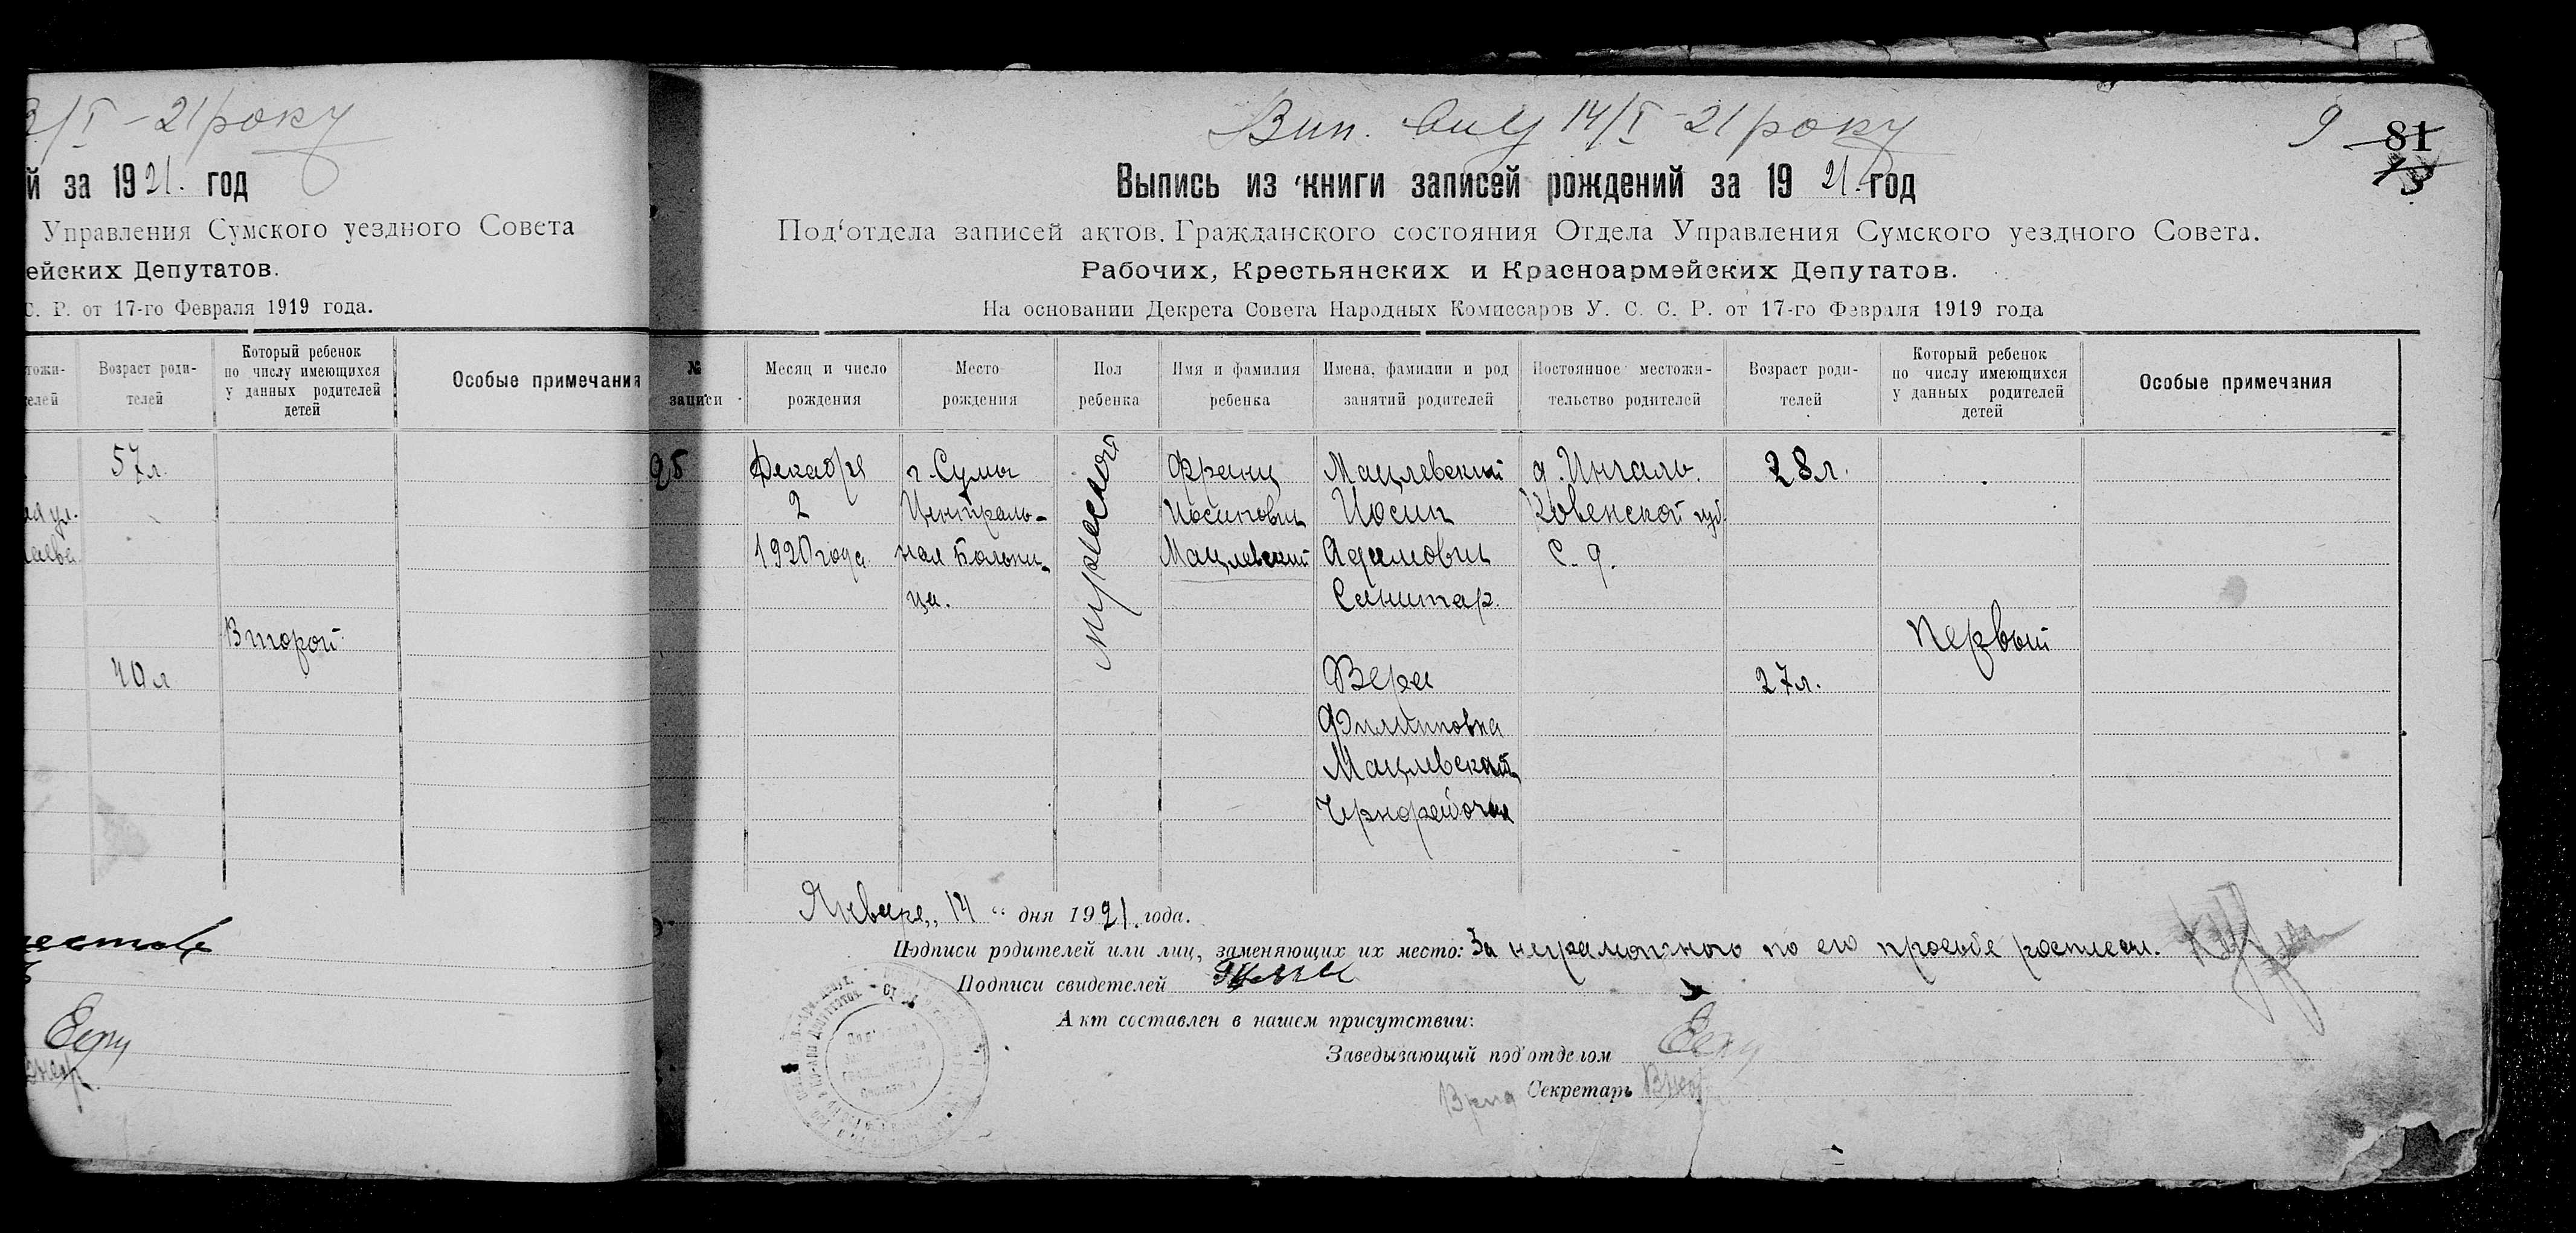 /I - 21 року
й за 1921. год
Управления Сумского уездного Совета
ейских Депутатов.
С. Р. от 17-го Февраля 1919 года.
тожи-
телей
Возраст роди-
телей
Который ребенок
по числу имеющихся
у данных родителей
детей
Особые примечания
57 л.
ул.
Второй
40 л
Вип. 14/I - 21 року
9
81
13
Выпись из книги записей рождений за 1921. год
Под'отдела записей актов. Гражданского состояния Отдела Управления Сумского уездного Совета.
Рабочих, Крестьянских и Красноармейских Депутатов.
На основании Декрета Совета Народных Комиссаров У. С. С. Р. от 17-го Февраля 1919 года
№
записи
Месяц и число
рождения
Место
рождения
Пол
ребенка
Имя и фамилия
ребенка
Имена, фамилии и род
занятий родителей
Постоянное местожи-
тельство родителей
Возраст роди-
телей
Который ребенок
по числу имеющихся
у данных родителей
детей
Особые примечания
95
Декабря
2
1920 года
г. Сумы
Централь-
ная Больни-
ца.
мужеской
Франц
Иосипович
Мацлевский
Мацлевский
Иосип
Адамович
Санитар.
Вера
Филиповна
Мацлевская
Чернорабочая
д. Ингаль.
Ковенской губ.
С. д.
28 л.
27 л.
Первый
Января „ 14 “ дня 1921. года.
Подписи родителей или лиц, заменяющих их место: За неграмотного по его просьбе росписал.
Подписи свидетелей
Акт составлен в нашем присутствии:
Заведывающий под'отделом
Врид Секретарь